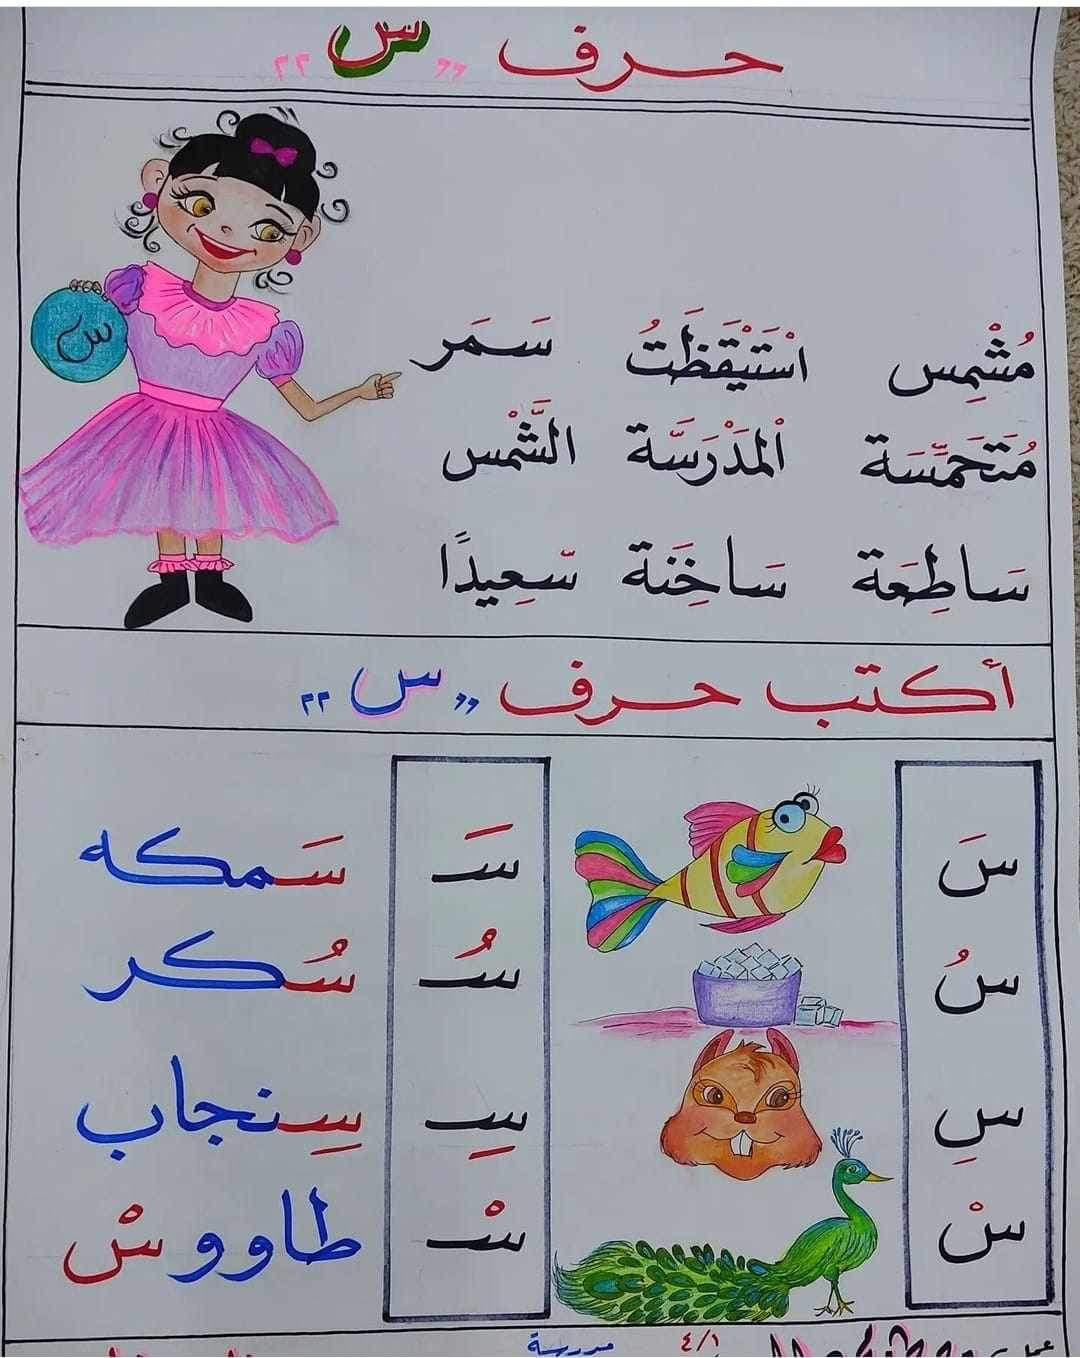 حرف ,, س ,,
س
مُشْمِس اسْتَيْقَظَتُ سَمَر
مُتَحَمِّسَة الْمَدْرَسَّة الشَّمْس
سَاطِعَة سَاخِنَة سَّعِيدًا
أكتب حرف ,, س ,,
سَ سَـ سَمكه
سُ سُـ سُكر
سِ سِـ سِنجاب
سْ سْـ طاووسْ
عمل ٤/١ مدرسة